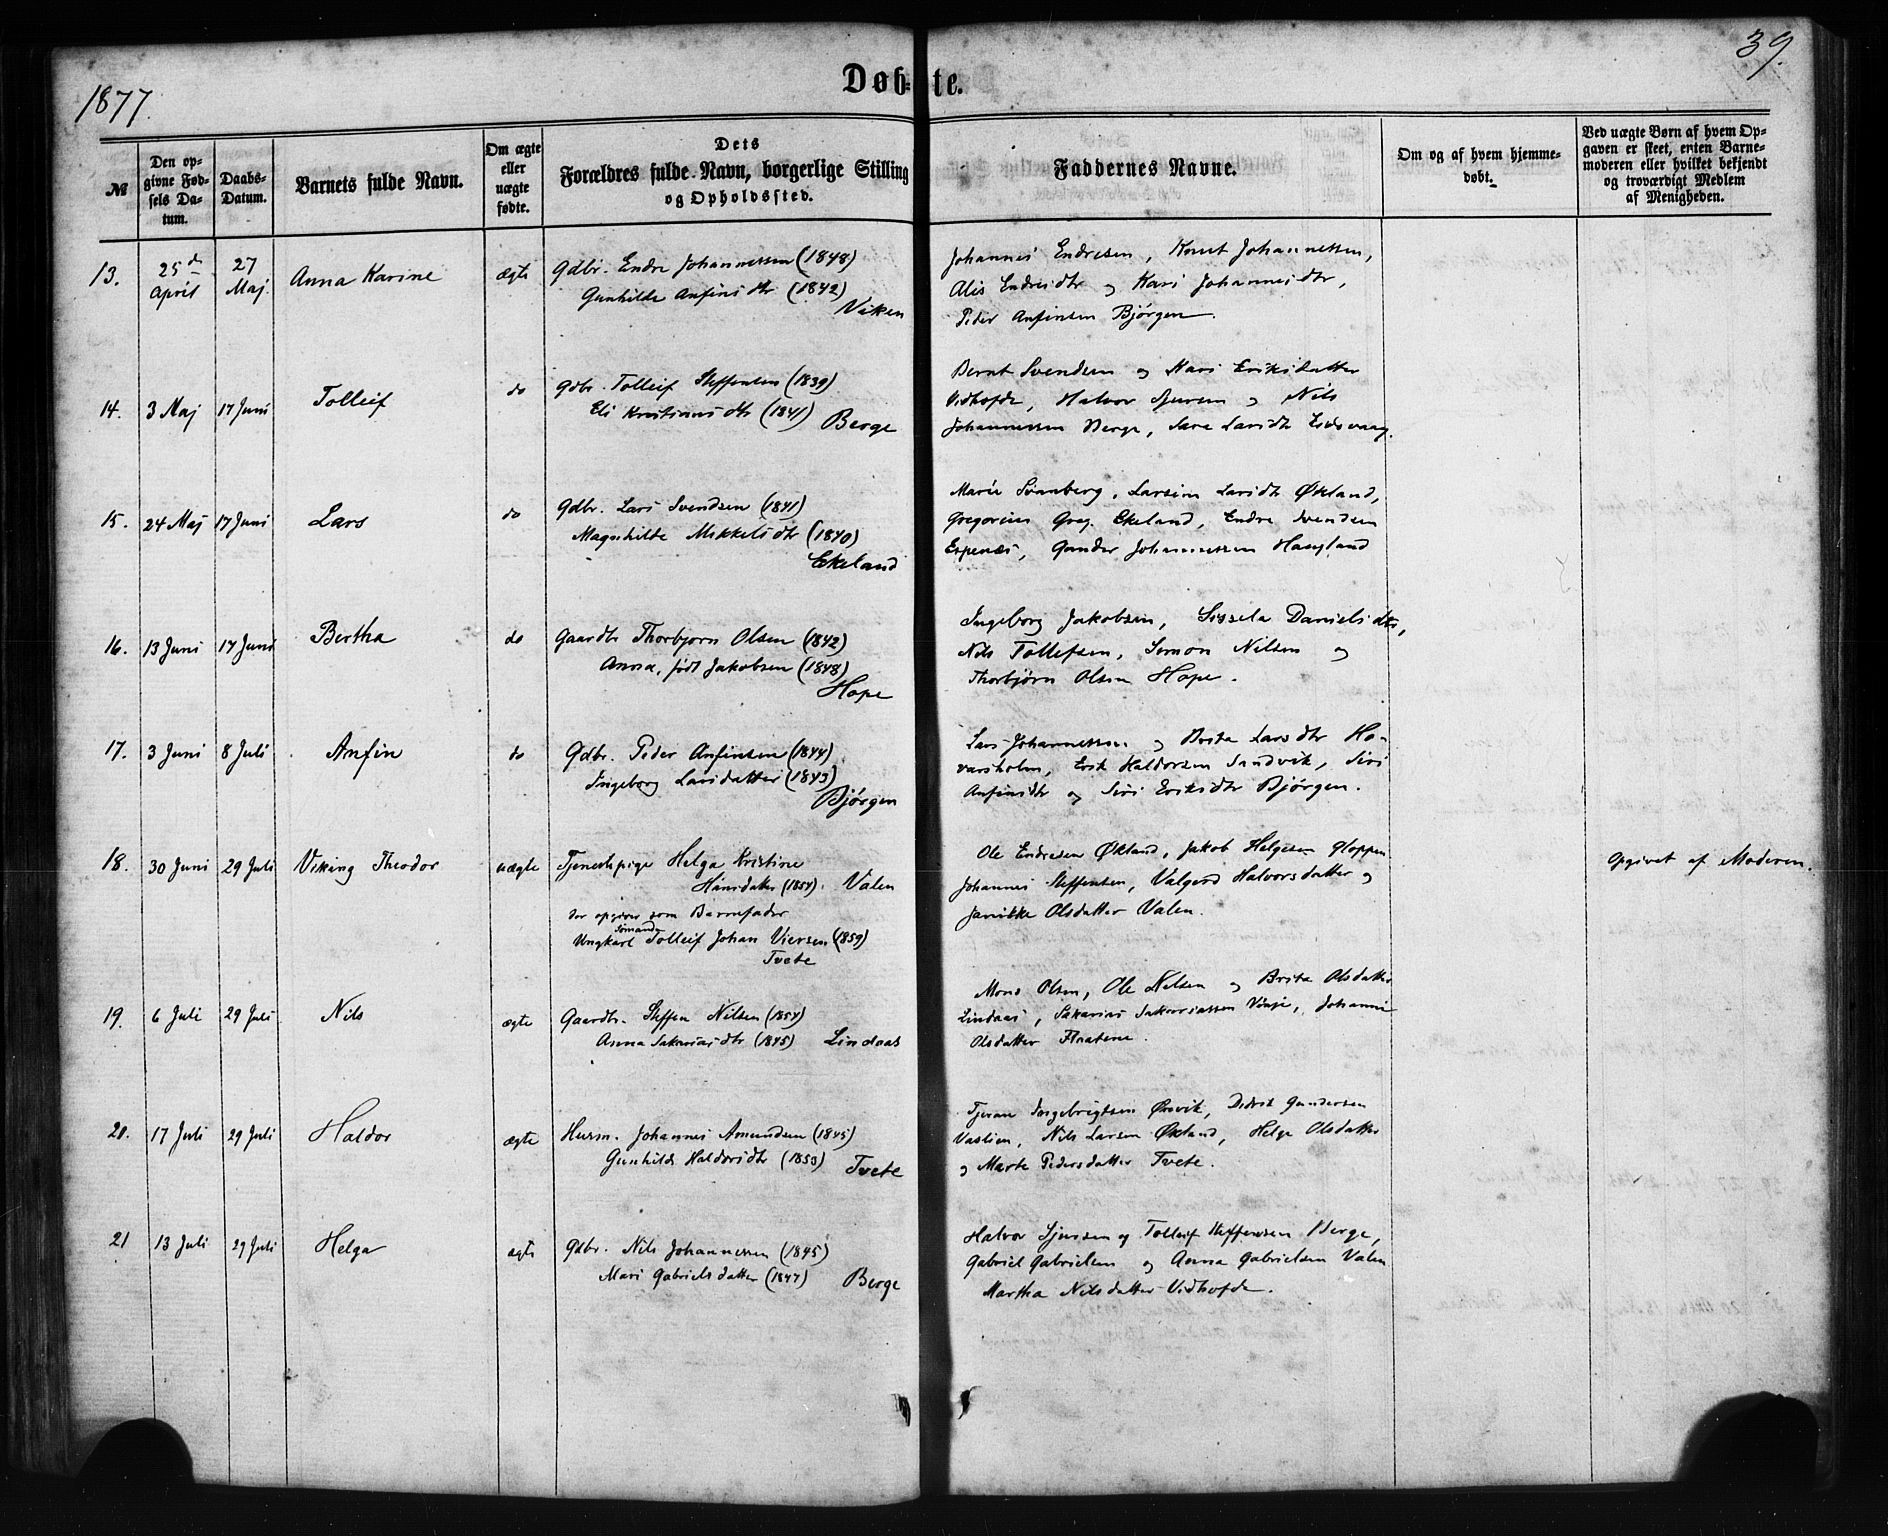 1877.
Døbte.
39.
№
Den opgivne Fødsels Datum.
Daabs-Datum.
Barnets fulde Navn.
Om ægte eller uægte fødte.
Dets Forældres fulde Navn, borgerlige Stilling og Opholdssted.
Faddernes Navne.
Om og af hvem hjemmedøbt.
Ved uægte Børn af hvem Opgaven er skeet, enten Barnemoderen eller hvilket bekjendt og troværdigt Medlem af Menigheden.
13.
25de April
27 Maj.
Anna Karine
ægte
Gdbr. Endre Johannessen (1848)
Gunhilde Anfinsdtr (1842)
Viken
Johannes Endresen, Knut Johannessen,
Alis Endresdtr og Kari Johannesdtr,
Peder Anfinsen Bjørgen.
14.
3 Maj
17 Juni
Tolleif
do
Gdbr. Tolleif Steffensen (1839)
Eli Kristiansdtr (1841)
Berge
Bernt Svendsen og Kari Eriksdatter
Vidhofde, Halvor Sjursen og Nils
Johannessen Berge, Sare Larsdtr Eidsvaag.
15.
24 Maj
17 Juni
Lars
do
Gdbr. Lars Svendsen (1841)
Magnhilde Mikkelsdtr (1840)
Ekeland
Marie Svanberg, Larsine Larsdtr Økland,
Gregorius Greg. Ekeland, Endre Svendsen
Espenæs, Gunder Johannessen Haugland
16.
13 Juni
17 Juni
Bertha
do
Gaardbr Thorbjørn Olsen (1842)
Anna, født Jakobsen (1848)
Hope
Ingeborg Jakobsen, Sissela Danielsdtr,
Nils Tollefsen, Simon Nilsen og
Thorbjørn Olsen Hope.
17.
3 Juni
8 Juli
Anfin
do
Gdbr. Peder Anfinsen (1844)
Ingeborg Larsdatter (1843)
Bjørgen
Lars Johannessen og Brita Larsdtr Ho-
varsholm, Erik Haldorsen Sandvik, Siri
Anfinsdtr og Siri Eriksdtr Bjørgen.
18.
30 Juni
29 Juli
Viking Theodor
uægte
Tjenestepige Helga Kristine
Hansdatter (1854). Valen
der opgiver som Barnefader
Ungkarl Sømand Tolleif Johan Viersen (1859)
Tvete
Ole Endresen Økland, Jakob Helgesen Gloppen
Johannes Steffensen, Valgerd Halvorsdatter og
Jannikke Olsdatter Valen.
Opgivet af Moderen.
19.
6 Juli
29 Juli
Nils
ægte
Gaardbr. Steffen Nilsen (1854)
Anna Sakariasdtr (1845)
Lindaas
Mons Olsen, Ole Nilsen og Brita Olsdatter
Lindaas, Sakarias Sakariassen Vinje, Johanne
Olsdatter Flaatene.
20.
17 Juli
29 Juli
Haldor
ægte
Husm. Johannes Amundsen (1845)
Gunhild Haldorsdtr (1853)
Tvete
Tjeran Ingebrigtsen Ørevik, Didrik Gundersen
Vaslien, Nils Larsen Økland, Helga Olsdatter
og Marte Pedersdatter Tvete.
21
13 Juli
29 Juli
Helga
ægte
Gdbr. Nils Johannessen (1845)
Mari Gabrielsdatter (1847)
Berge
Halvor Sjursen og Tolleif Steffensen Berge,
Gabriel Gabrielsen og Anna Gabrielsen Valen
Martha Nilsdatter Vidhofde.